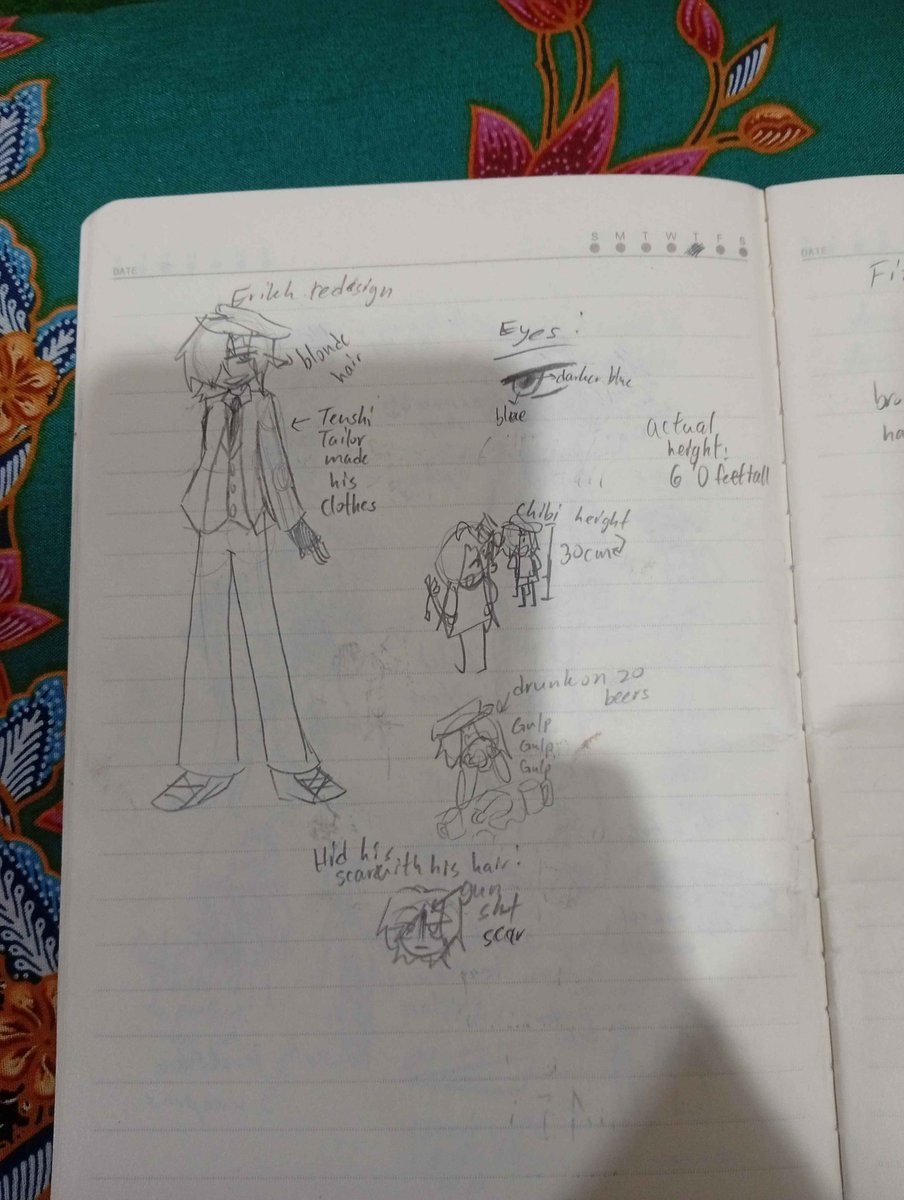 S M T W T F S
DATE
DATE
Erikh redesign
blonde
hair
Tenshi
Tailor
made
his
clothes
Eyes:
darker blue
blue
actual
height:
6 0 feet tall
chibi height
30cm
drunk on 20
beers
Gulp
Gulp
Gulp
Hid his
scar with his hair!
gun
shot
scar